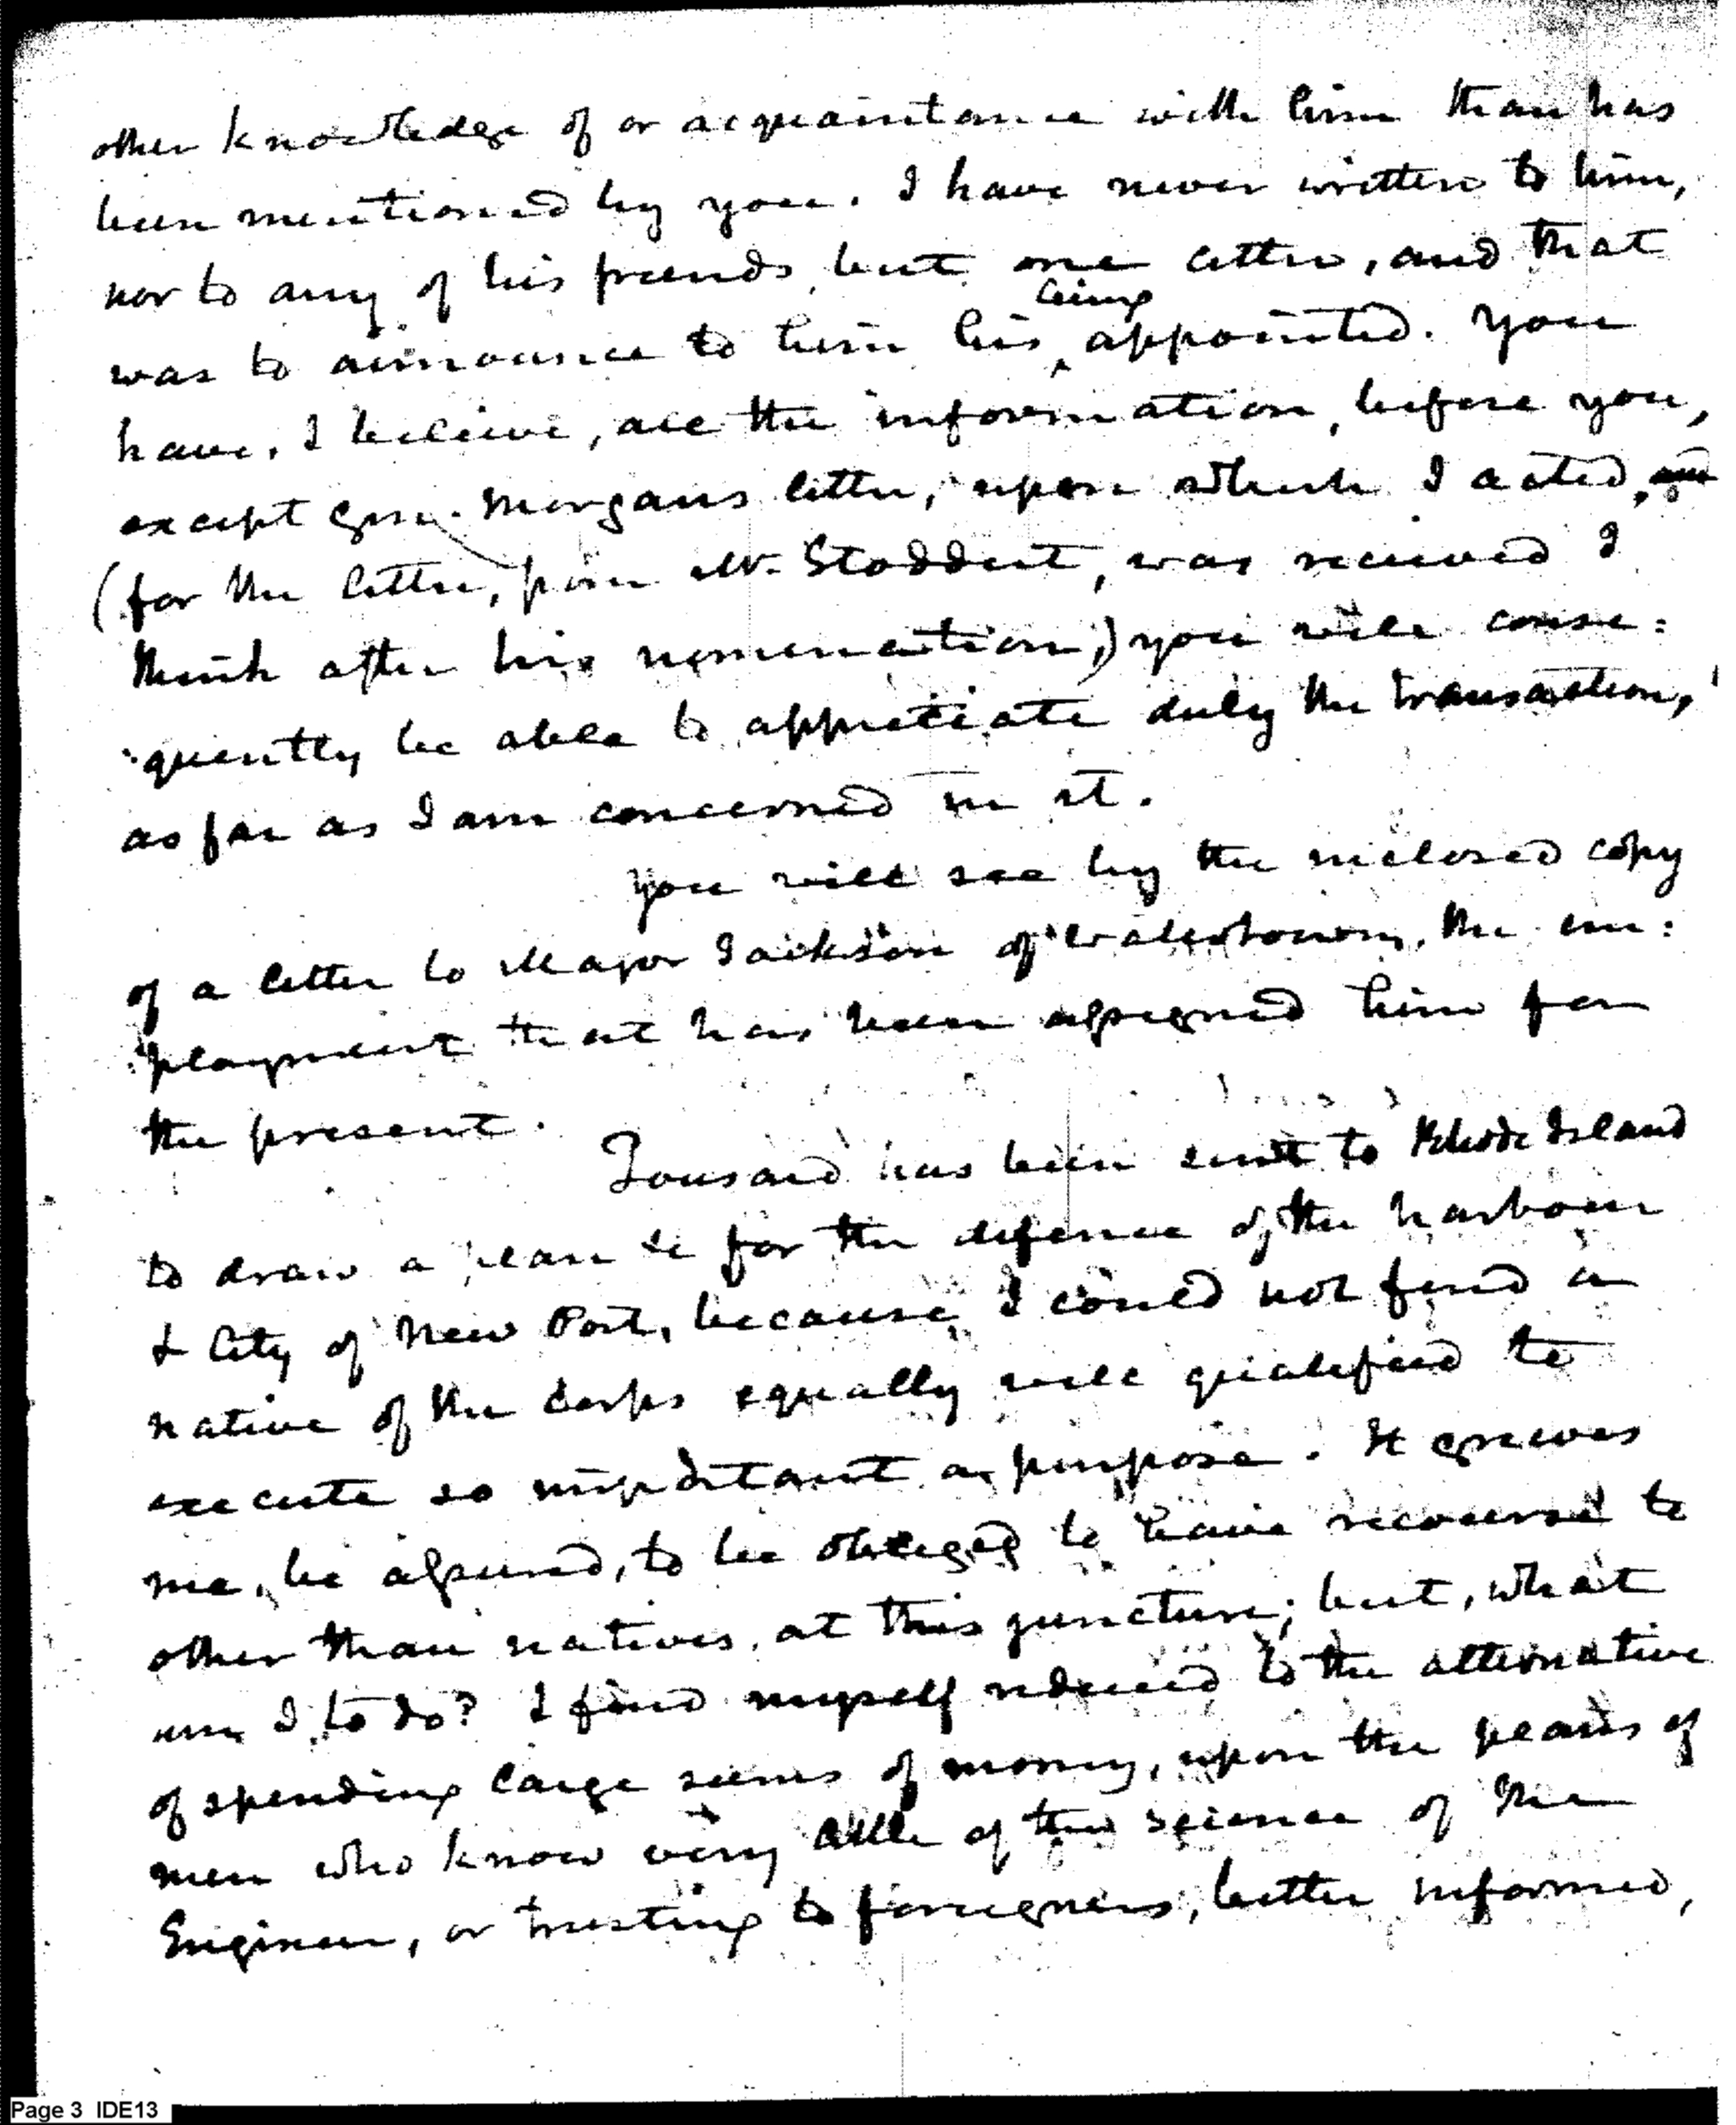 other knowledge of or acquaintance with him than has
been mentioned by you. I have never written to him,
nor to any of his friends, but one letter, and that
being
was to announce to him his ^ appointed. You
have, I believe, all the information, before you,
except Gen. Morgans letter, upon which I acted,
(for the letter, from Mr. Stoddert, was received I
think after his nomination,) you will conse:
:quently be able to appretiate duly the transaction,
as far as I am concerned in it.
You will see by the inclosed copy
of a letter to Major Jackson of Watertown, the em:
:ployment that has been assigned him for
the present.
Tousard has been sent to Rhode Island
to draw a plan &c for the defence of the harbour
& City of New Port, because, I could not find a
native of the Corps equally well qualified to
execute so important a purpose. It grieves
me, be assured, to be obliged to have recourse to
other than natives, at this juncture; but, what
am I to do? I find myself reduced to the alternative
of spending large sums of money, upon the plans of
men who know very little of the science of the
Engineer, or trusting to foreigners, better informed,
Page 3 IDE13